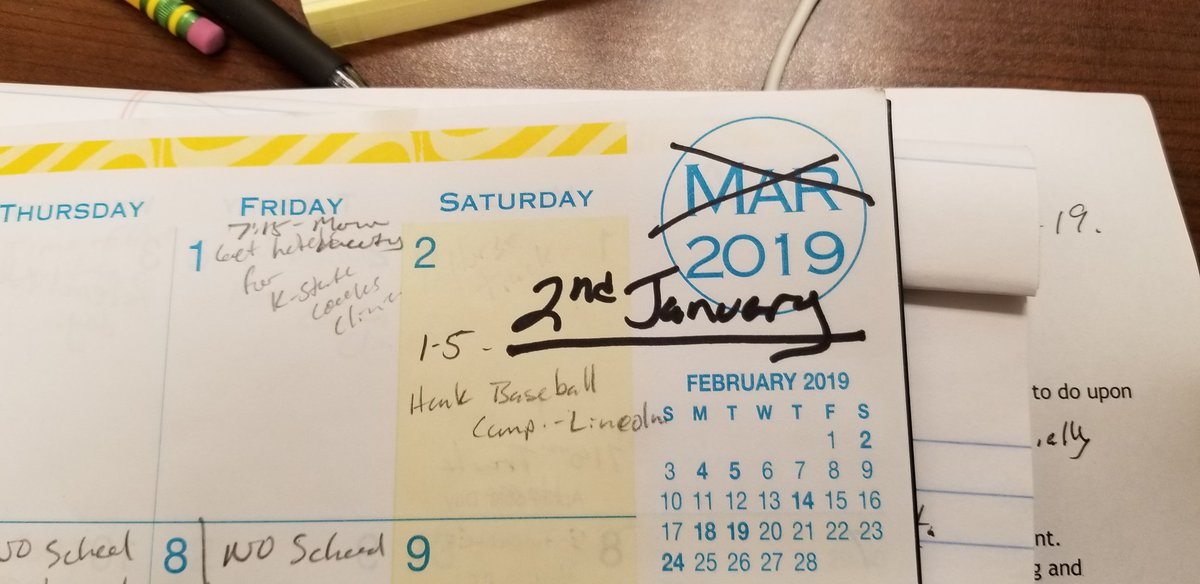 THURSDAY
FRIDAY
SATURDAY
MAR
2019
2nd January
1
7:15 - Mom
Get
for
K-State
Clinic
2
1-5 -
Hank Baseball
Camp - Lincoln
FEBRUARY 2019
S M T W T F S
1 2
3 4 5 6 7 8 9
10 11 12 13 14 15 16
17 18 19 20 21 22 23
24 25 26 27 28
NO School
8
NO School
9
19.
to do upon
ally
nt.
g and